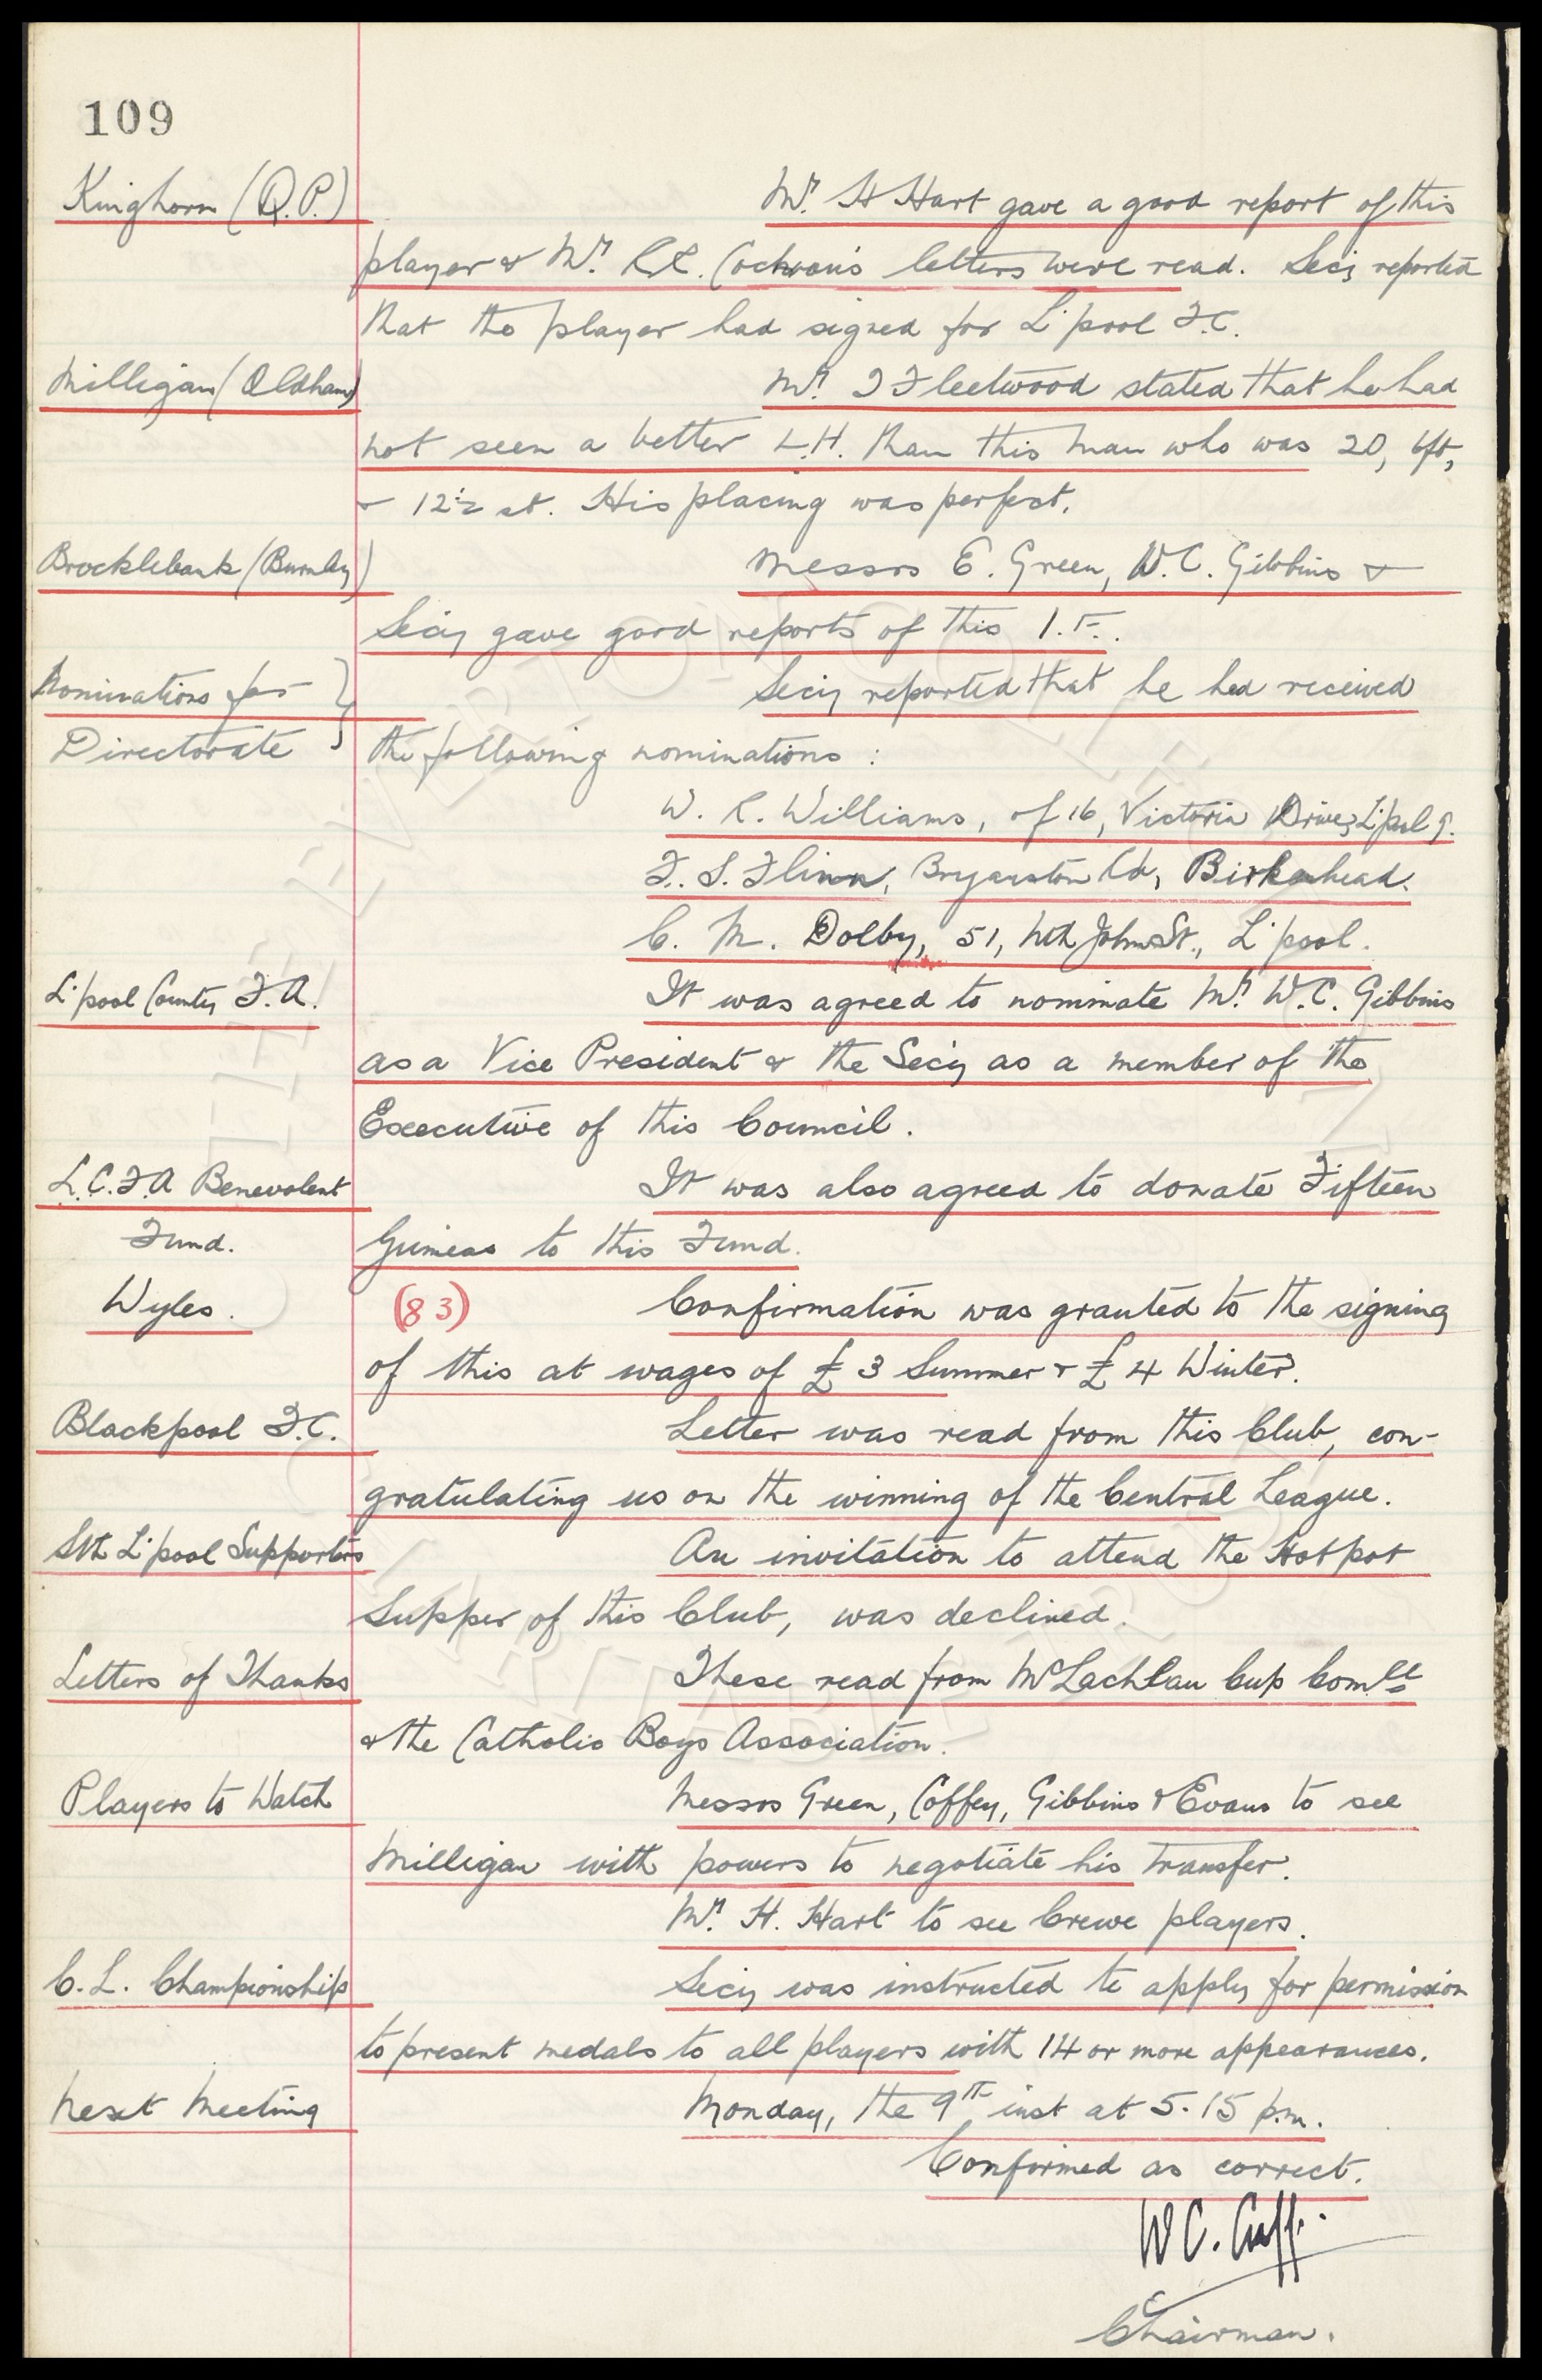 109
Kinghorn (Q.P.) Mr. H Hart gave a good report of this
player & Mr. R.R. Cochran's letters were read. Secy reported
that the player had signed for L'pool F.C.
Milligan (Oldham) Mr. J Fleetwood stated that he had
not seen a better L.H. than this man who was 20, 6ft,
& 12½ st. His placing was perfect.
Brocklebank (Burnley) Messrs E. Green, W.C. Gibbins &
Secy gave good reports of this I.F.
Nominations for Secy reported that he had received
Directorate the following nominations :
W. R. Williams, of 16, Victoria Drive, L'pool 9.
F. S. Flinn, Bryanston Rd, Birkenhead.
C. M. Dolby, 51, Nth John St., L'pool.
L'pool County F.A. It was agreed to nominate Mr. W.C. Gibbins
as a Vice President & the Secy as a member of the
Executive of this Council.
L.C.F.A Benevolent It was also agreed to donate Fifteen
Fund. Guineas to this Fund.
Wyles. (83) Confirmation was granted to the signing
of this at wages of £3 Summer & £4 Winter.
Blackpool F.C. Letter was read from this Club, con-
gratulating us on the winning of the Central League.
Sth L'pool Supporters An invitation to attend the Hotpot
Supper of this Club, was declined.
Letters of Thanks These read from McLachlan Cup Comtee
& the Catholic Boys Association.
Players to Watch Messrs Green, Coffey, Gibbins & Evans to see
Milligan with powers to negotiate his transfer.
Mr. H. Hart to see Crewe players.
C.L. Championship Secy was instructed to apply for permission
to present medals to all players with 14 or more appearances.
Next Meeting Monday, the 9th inst at 5.15 p.m.
Confirmed as correct.
W C. Cuff
Chairman.